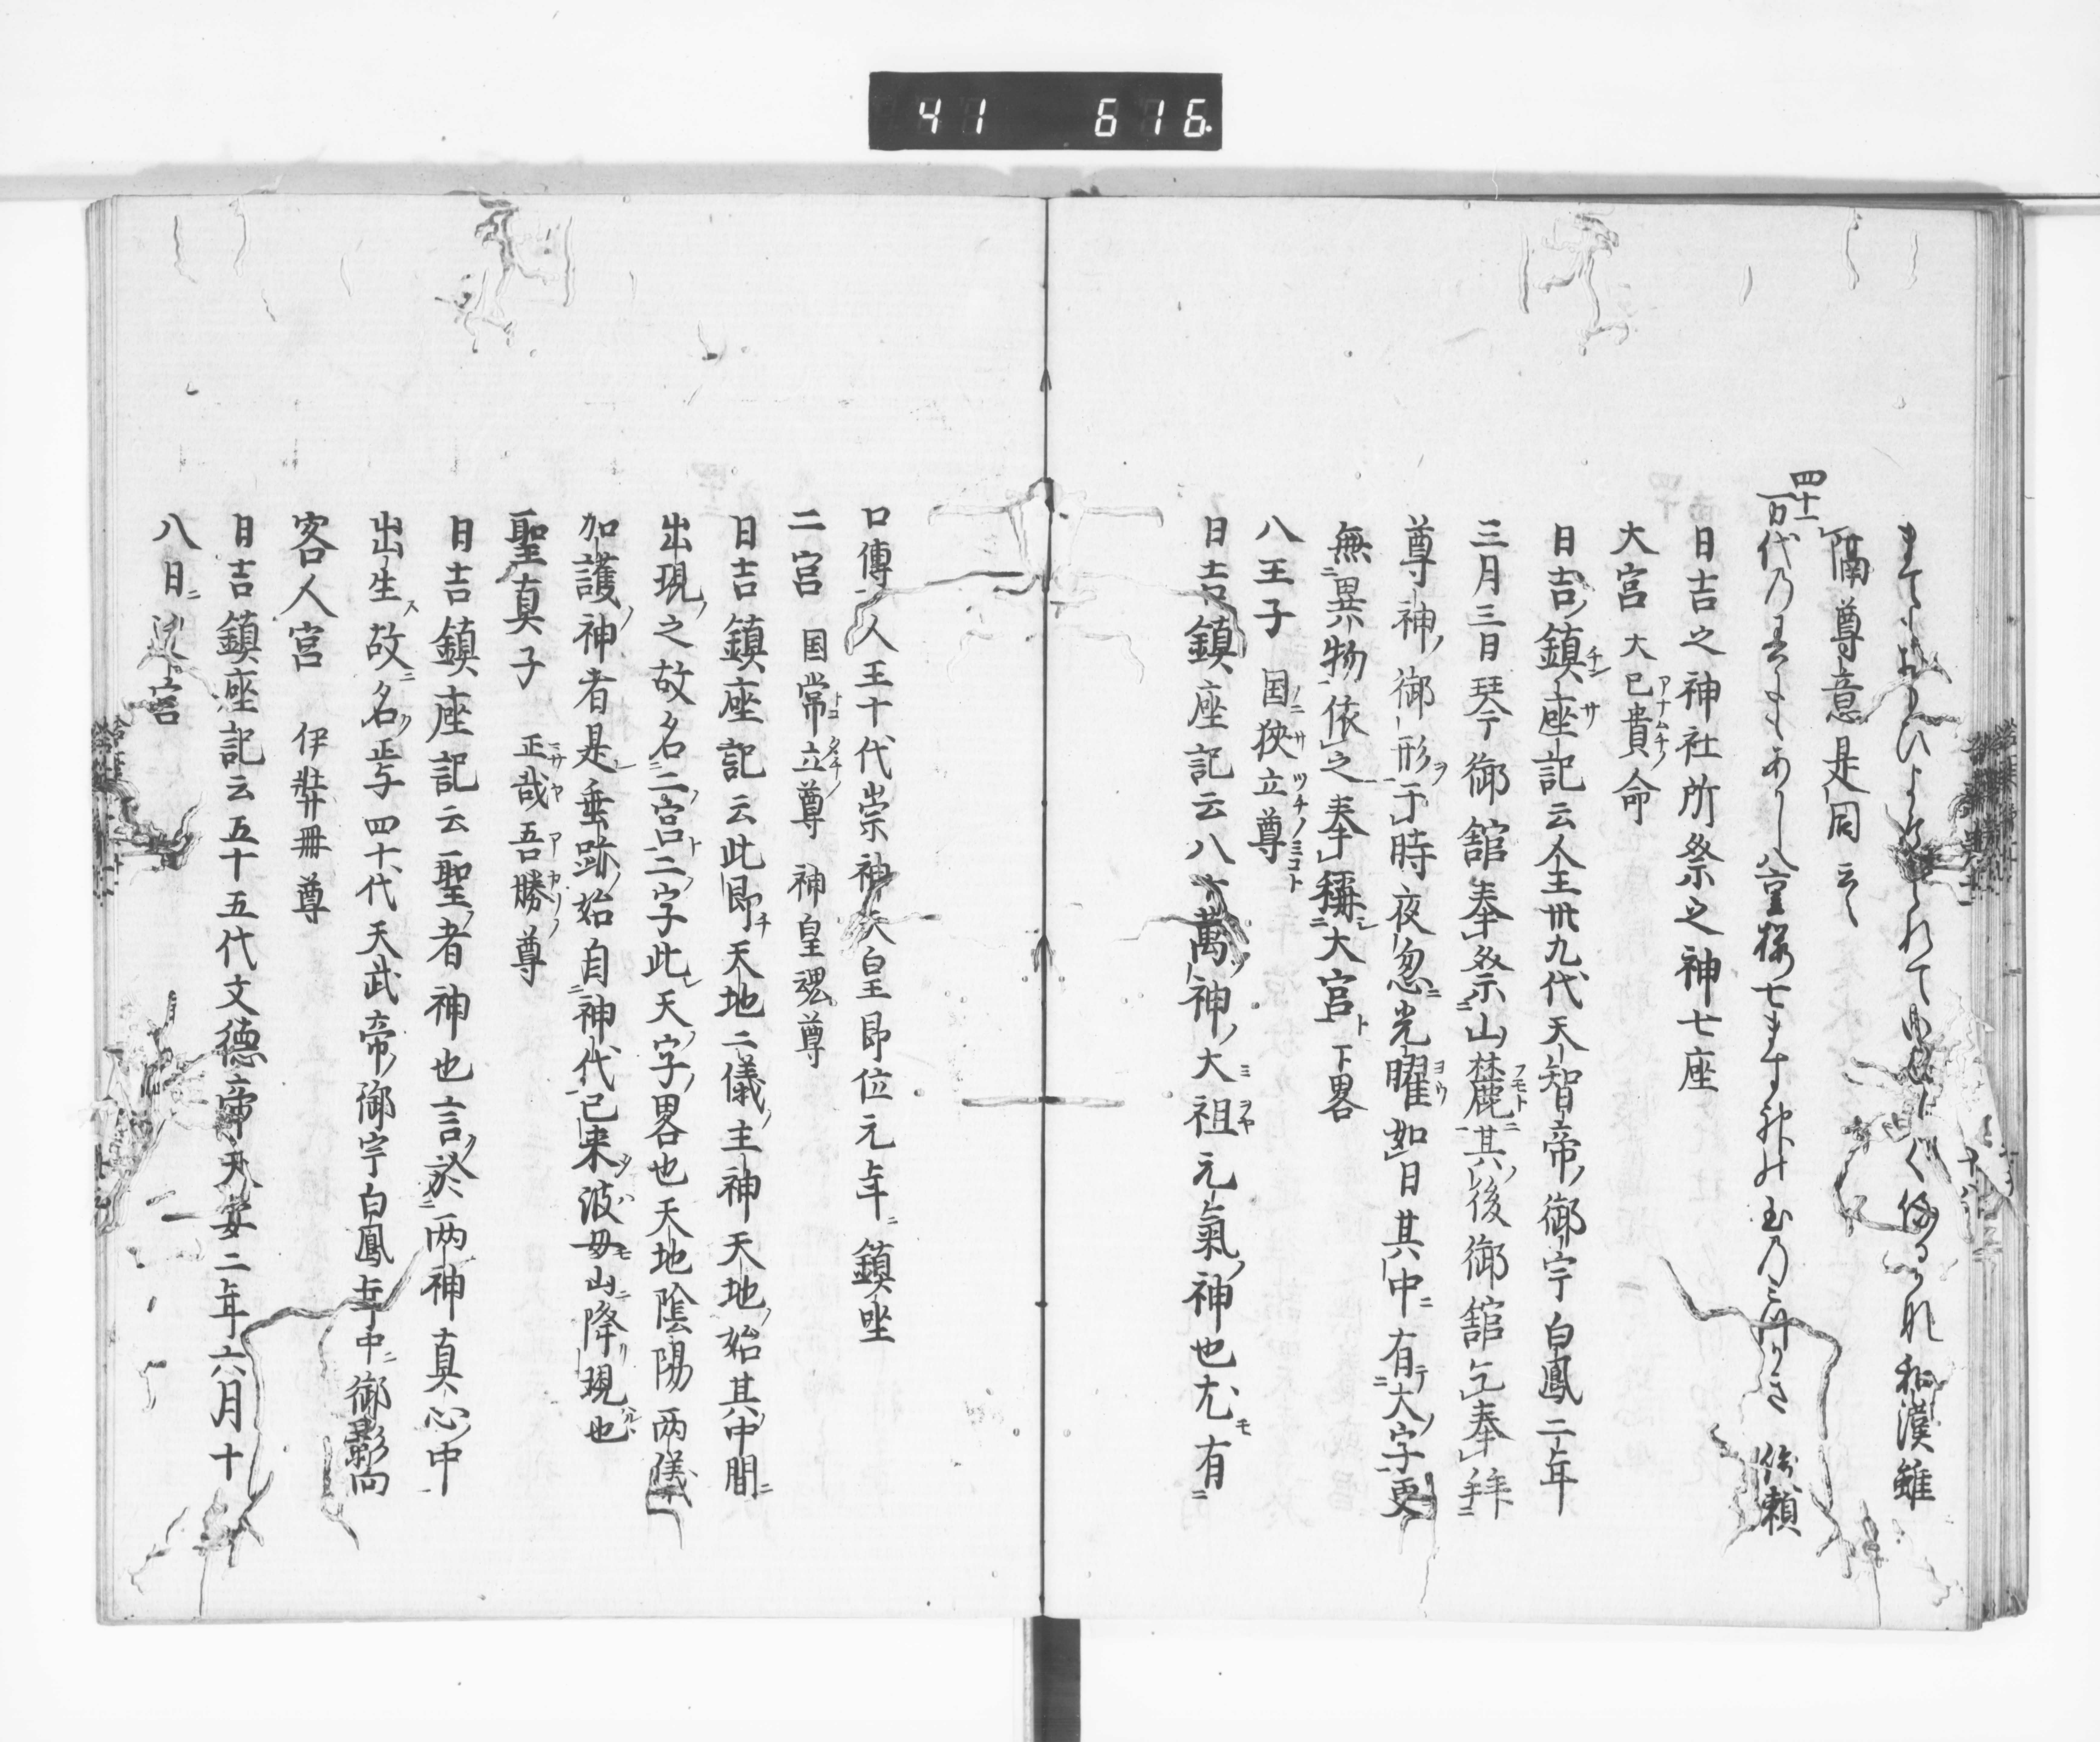 41 616
和漢雖
隔尊意是同云々
四十一
百代乃
俊頼
日吉之神社所祭之神七座
大宮 大己貴命 アナムチノ
日吉鎮座記云人王卅九代天智帝御宇白鳳二年
三月三日琴御舘奉祭山麓其後御舘乞奉拝
尊神御形于時夜忽光曜如日其中有大字更
無異物依之奉称大宮ト下畧
八王子 国狹立尊
日吉鎮座記云八百萬神大祖元氣神也尤有
口傳人王十代崇神天皇即位元年鎮坐
二宮 国常立尊 神皇魂尊
日吉鎮座記云此即天地二儀主神天地始其中間
出現之故名二宮二字此天字畧也天地陰陽両儀
加護神者是垂跡始自神代已来波母山降現也
聖真子 正哉吾勝尊
日吉鎮座記云聖者神也言於両神真心中
出生故名焉四十代天武帝御宇白鳳年中御影向
客人宮 伊弉冊尊
日吉鎮座記云五十五代文徳帝天安二年六月十
八日